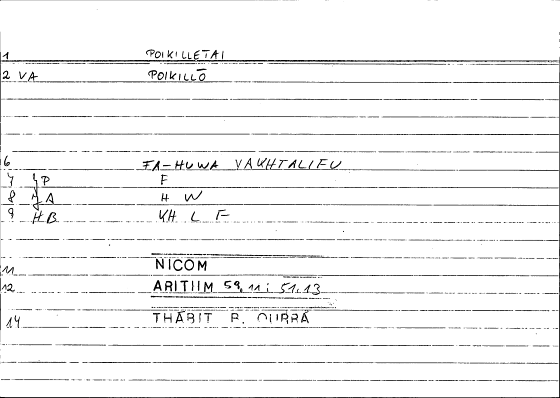 1 POIKILLETAI
2 VA POIKILLŌ
6 FA-HUWA YAKHTALIFU
7 P F
8 A H W
9 HB KH L F
11 NICOM
12 ARITIIM 59,11; 51,13
14 THĀBIT B. QURRA